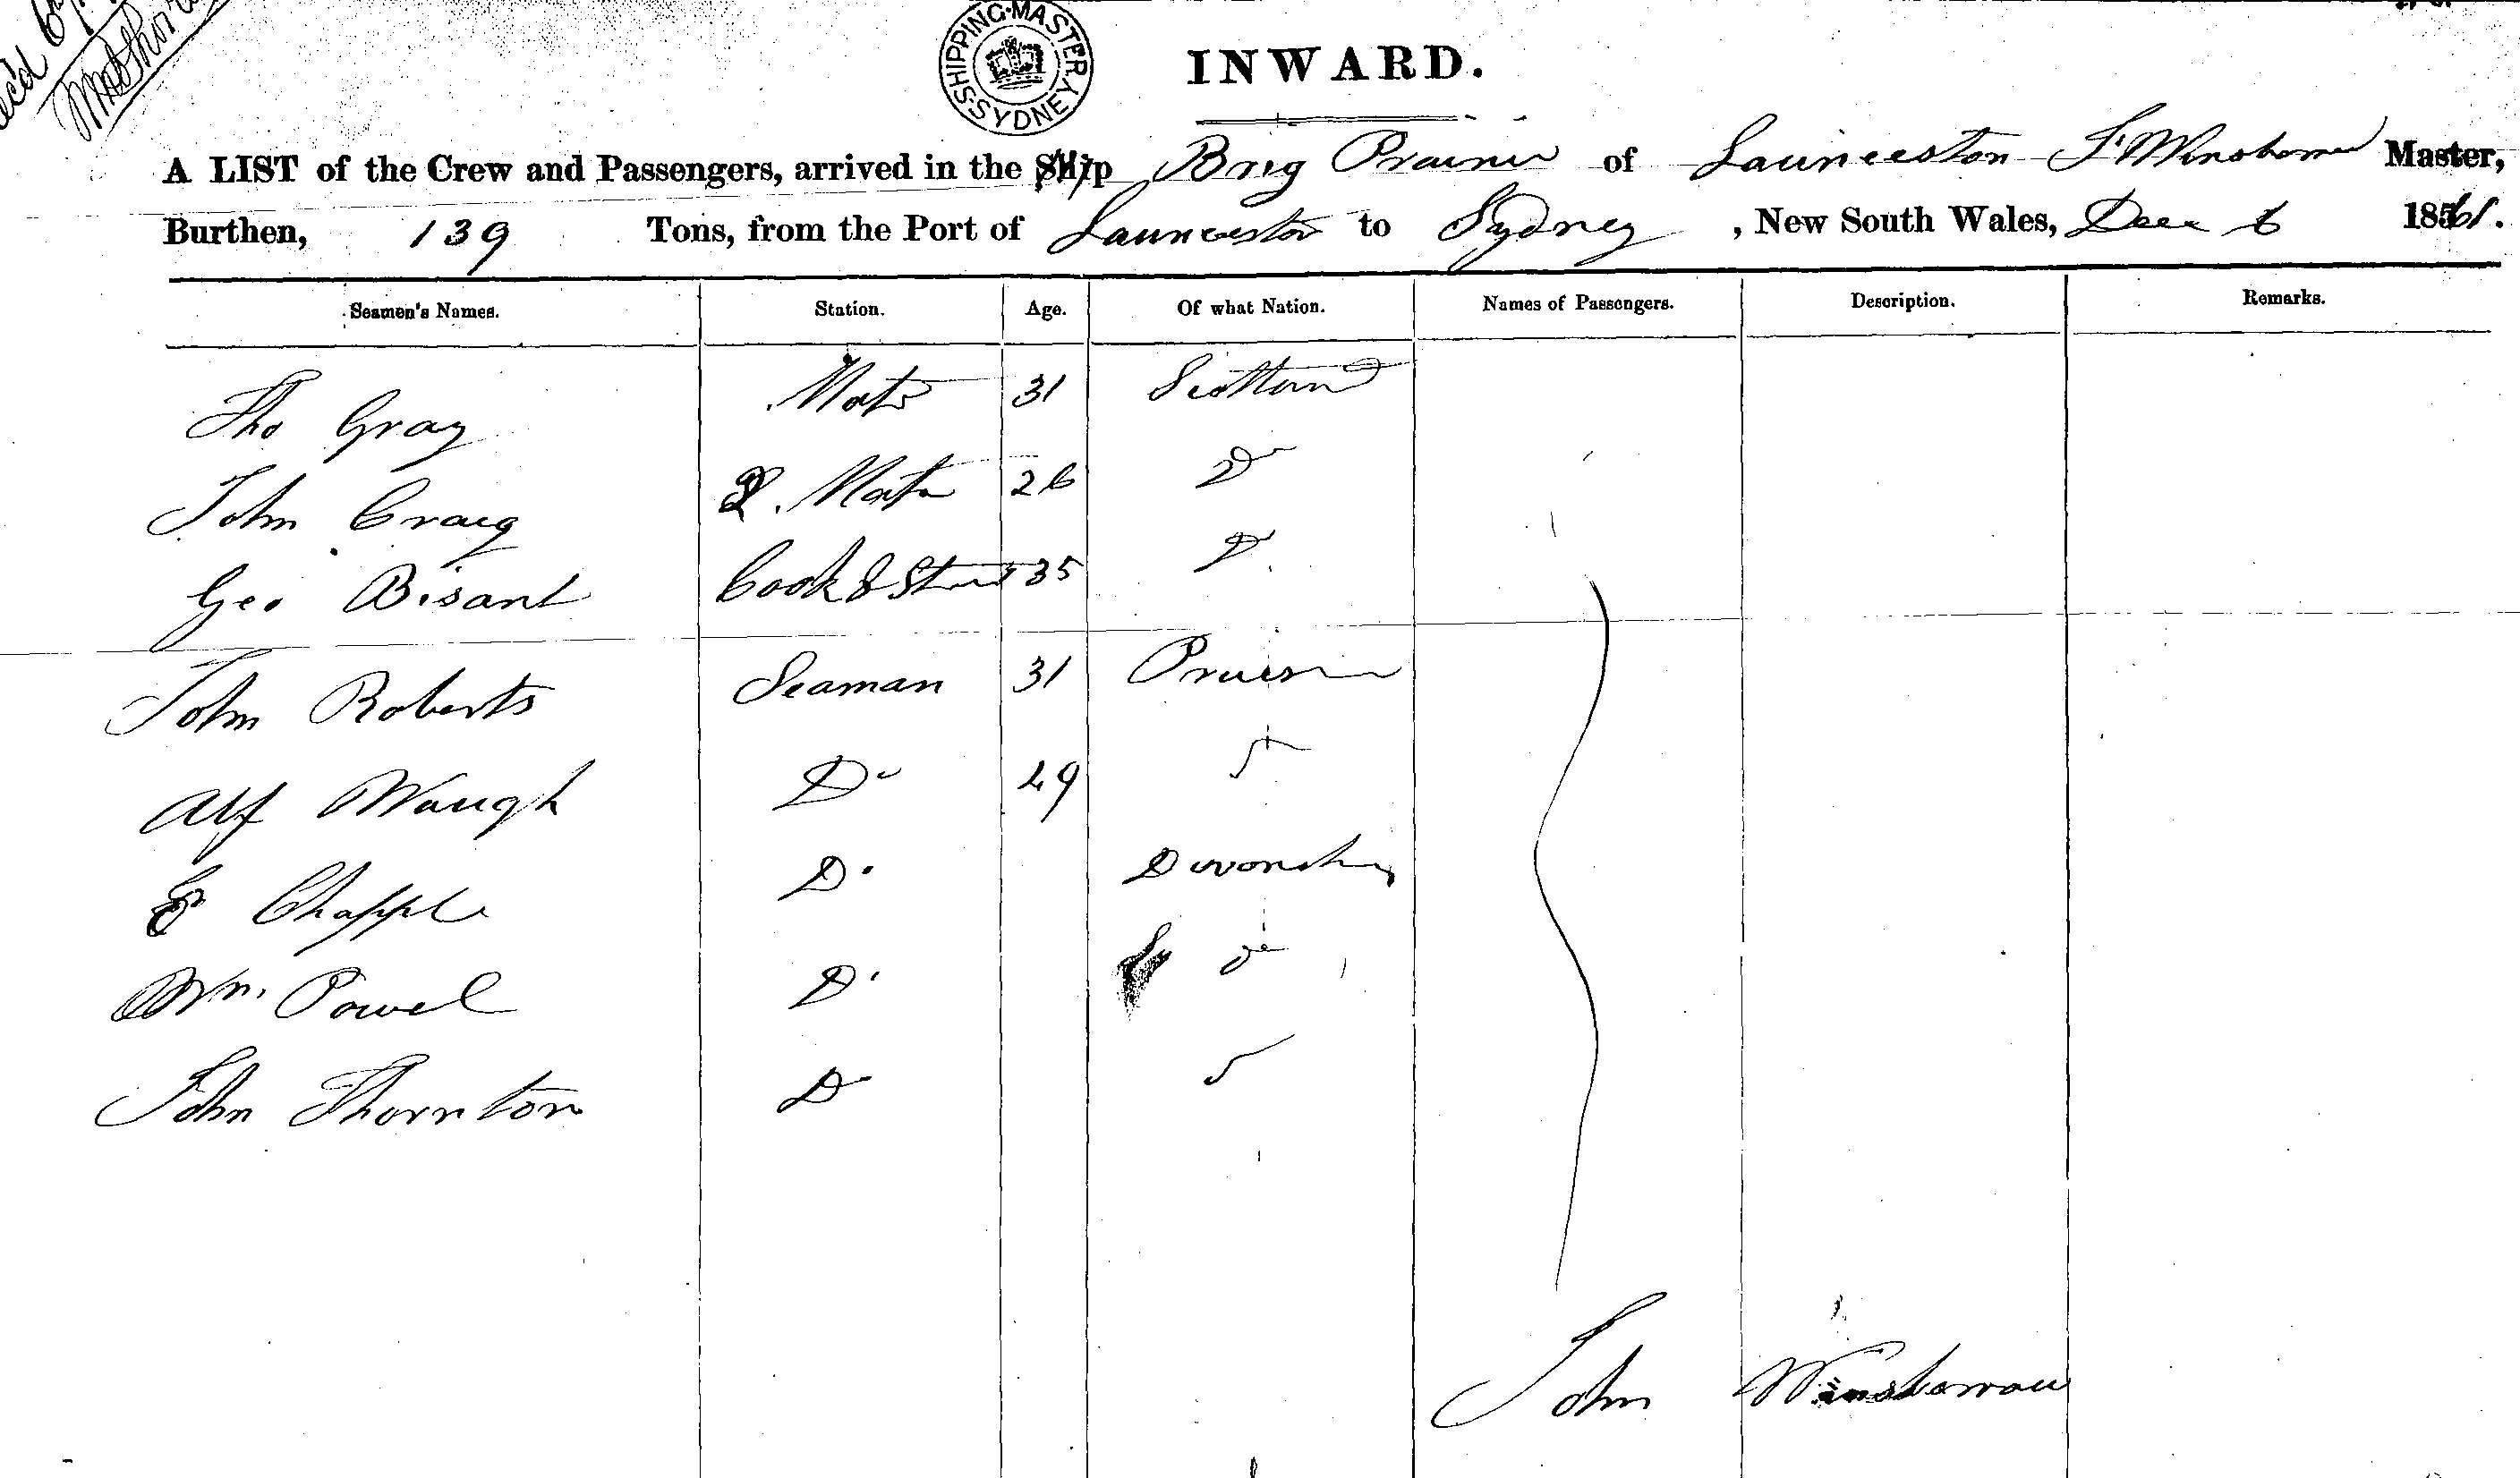 SHIPPING MASTER SYDNEY
INWARD.
A LIST of the Crew and Passengers, arrived in the Ship Brig Prairie of Launceston J Master,
Burthen, 139 Tons, from the Port of Launceston to Sydney, New South Wales, Dec 6 1861.
Seamen's Names. Station. Age. Of what Nation. Names of Passengers. Description. Remarks.
Tho Gray Mate 31 Scotland
John Craig 2. Mate 26 Do
Geo Bisant Cook & Stud 35 Do
John Roberts Seaman 31 Prussia
Alf Waugh Do 49
E Chapple Do Devonshire
Wm. Powel Do Do
John Thornton Do
John